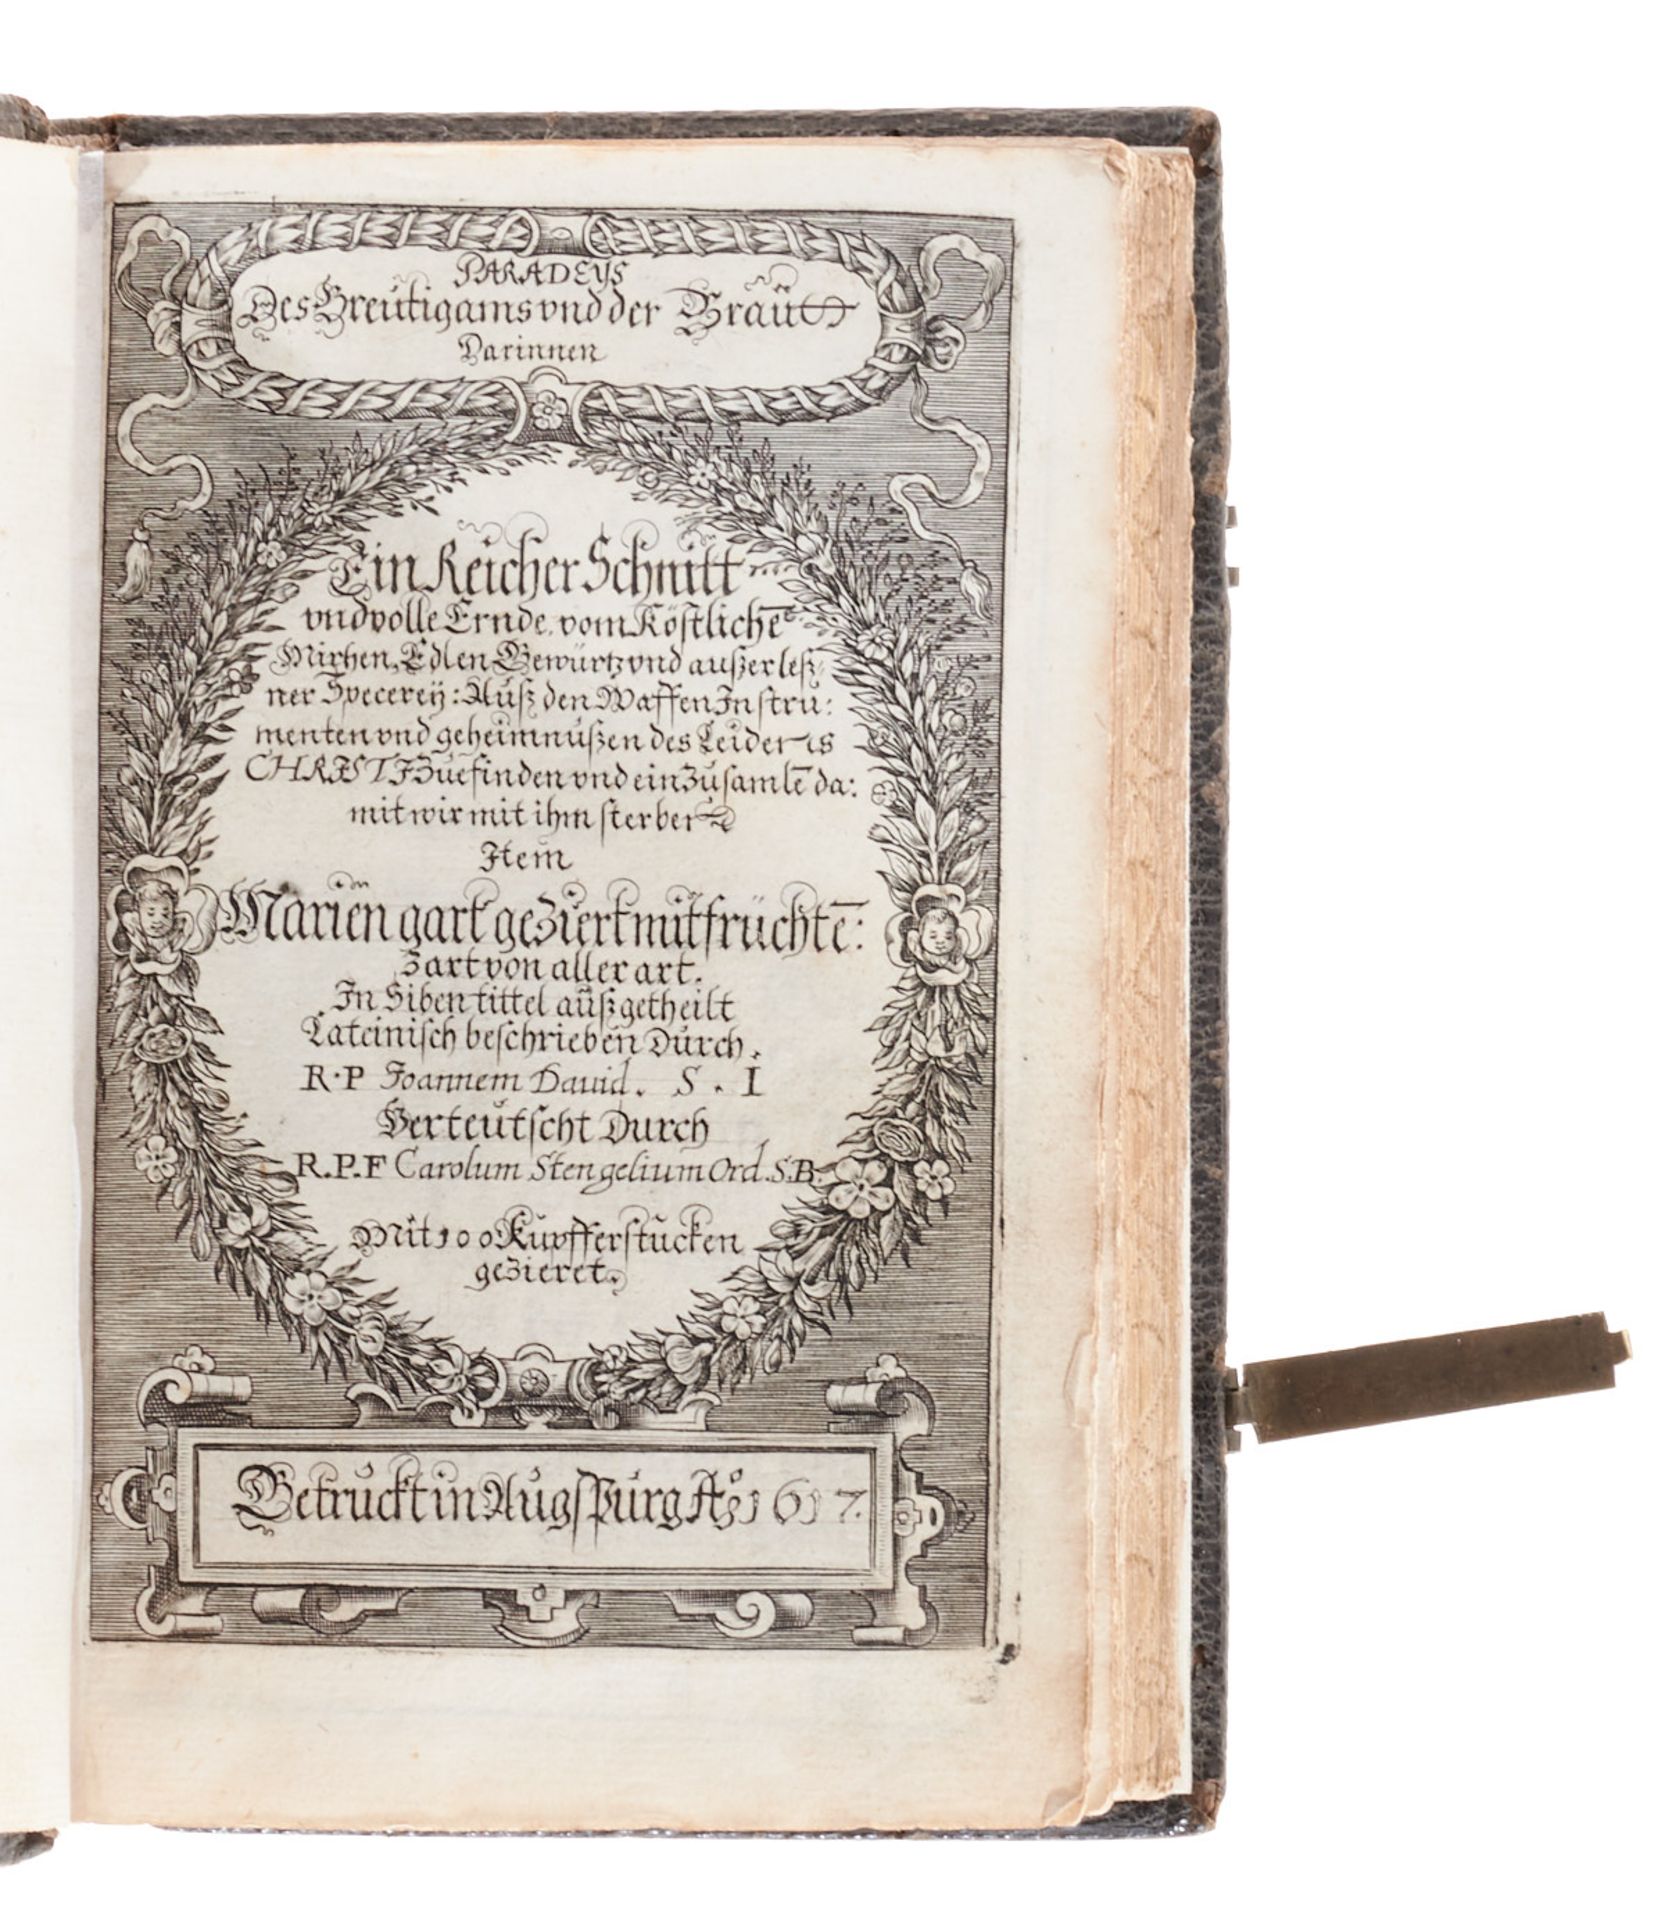 PARADEYS
Des Breutigams vnd der Braut
Darinnen
Ein Reicher Schnitt
vnd volle Ernde, vom Köstlichē
Mirhen, Edlen Gewürtz vnd außerleß,
ner Specerey: Auß den Waffen Instru:
menten vnd geheimnußen des Leidens
CHRISTI Zue finden vnd ein Zu samlē da:
mit wir mit ihm sterben
Item
Marien gart geziert mit früchtē:
Zart von aller art.
In Siben tittel außgetheilt
Lateinisch beschrieben Durch.
R.P Joannem Dauid. S. I
Verteutscht Durch
R.P.F Carolum Stengelium Ord.S.B.
Mit 100 Kupfferstucken
gezieret.
Getruckt in Augspurg Aº 1617.